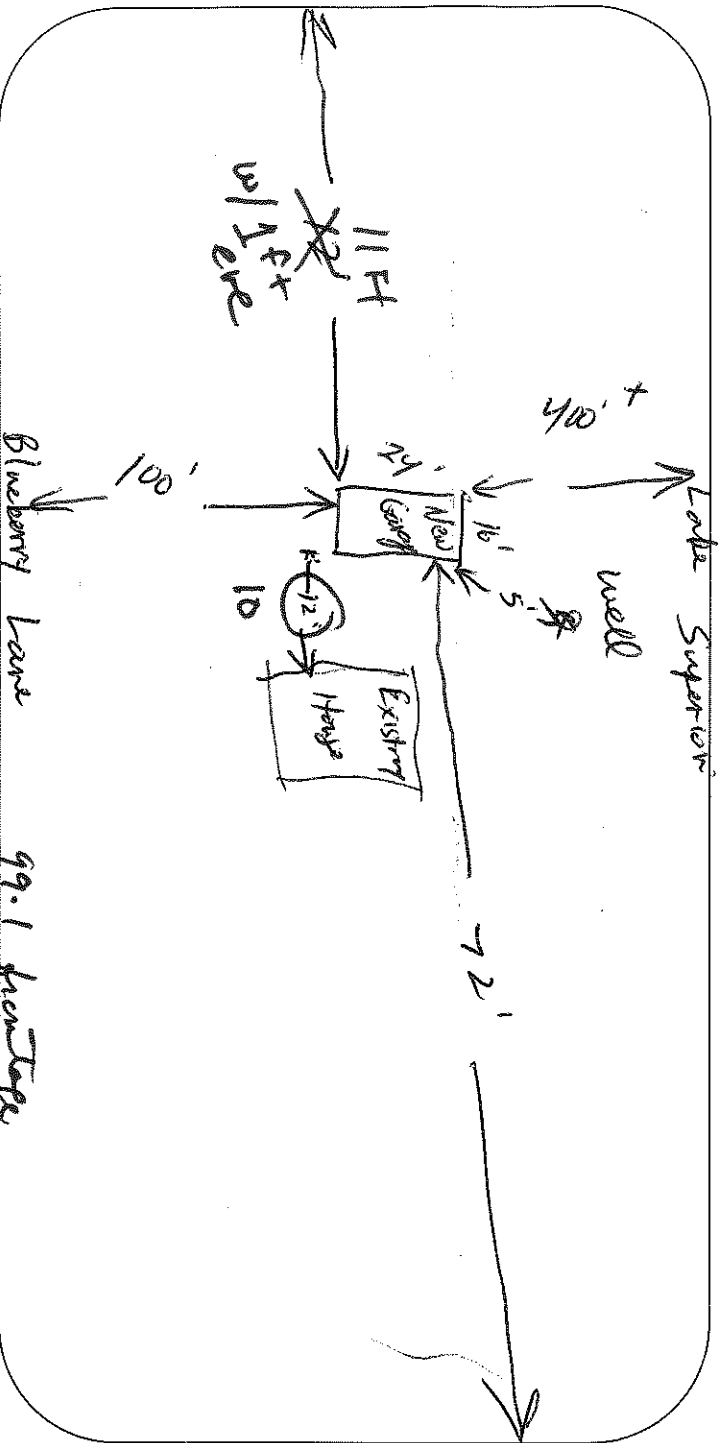 Lake Superior
400' +
well
5'
16'
24'
New
Garag
11 Ft
12'
w/ 1 ft
eve
100'
12'
10
Existing
House
72'
Blueberry Lane
99.1 frontage